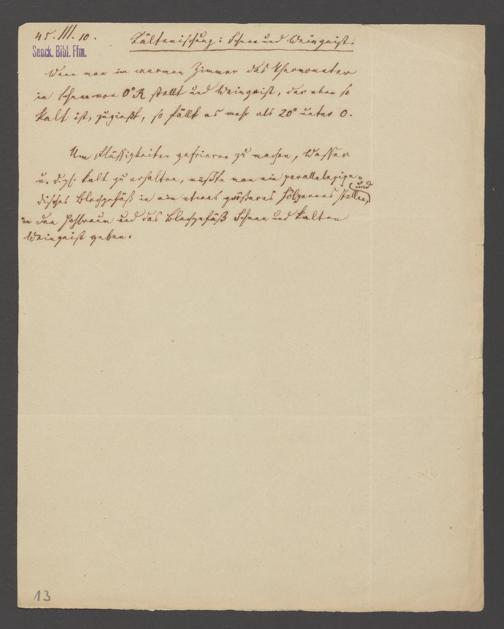 45. III. 10. Kältemischung: Schnee und Weingeist.
Senck. Bibl. Ffm.
Wenn man im warmen Zimmer das Thermometer
in Schnee von 0° R stellt und Weingeist, der eben so
kalt ist, zugießt, so fällt es mehr als 20° unter 0.
Um Flüssigkeiten gefrieren zu machen, Wasser
u. dgl. kalt zu erhalten, müßte man ein
Blechgefäß in ein etwas größeres hölzernes stellen, und
in den und das Blechgefäß Schnee und kalten
Weingeist geben.
13